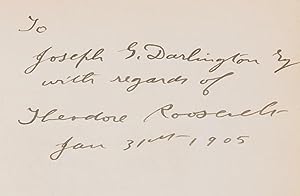 To
Joseph G. Darlington Esq
with regards of
Theodore Roosevelt
Jan 31st 1905